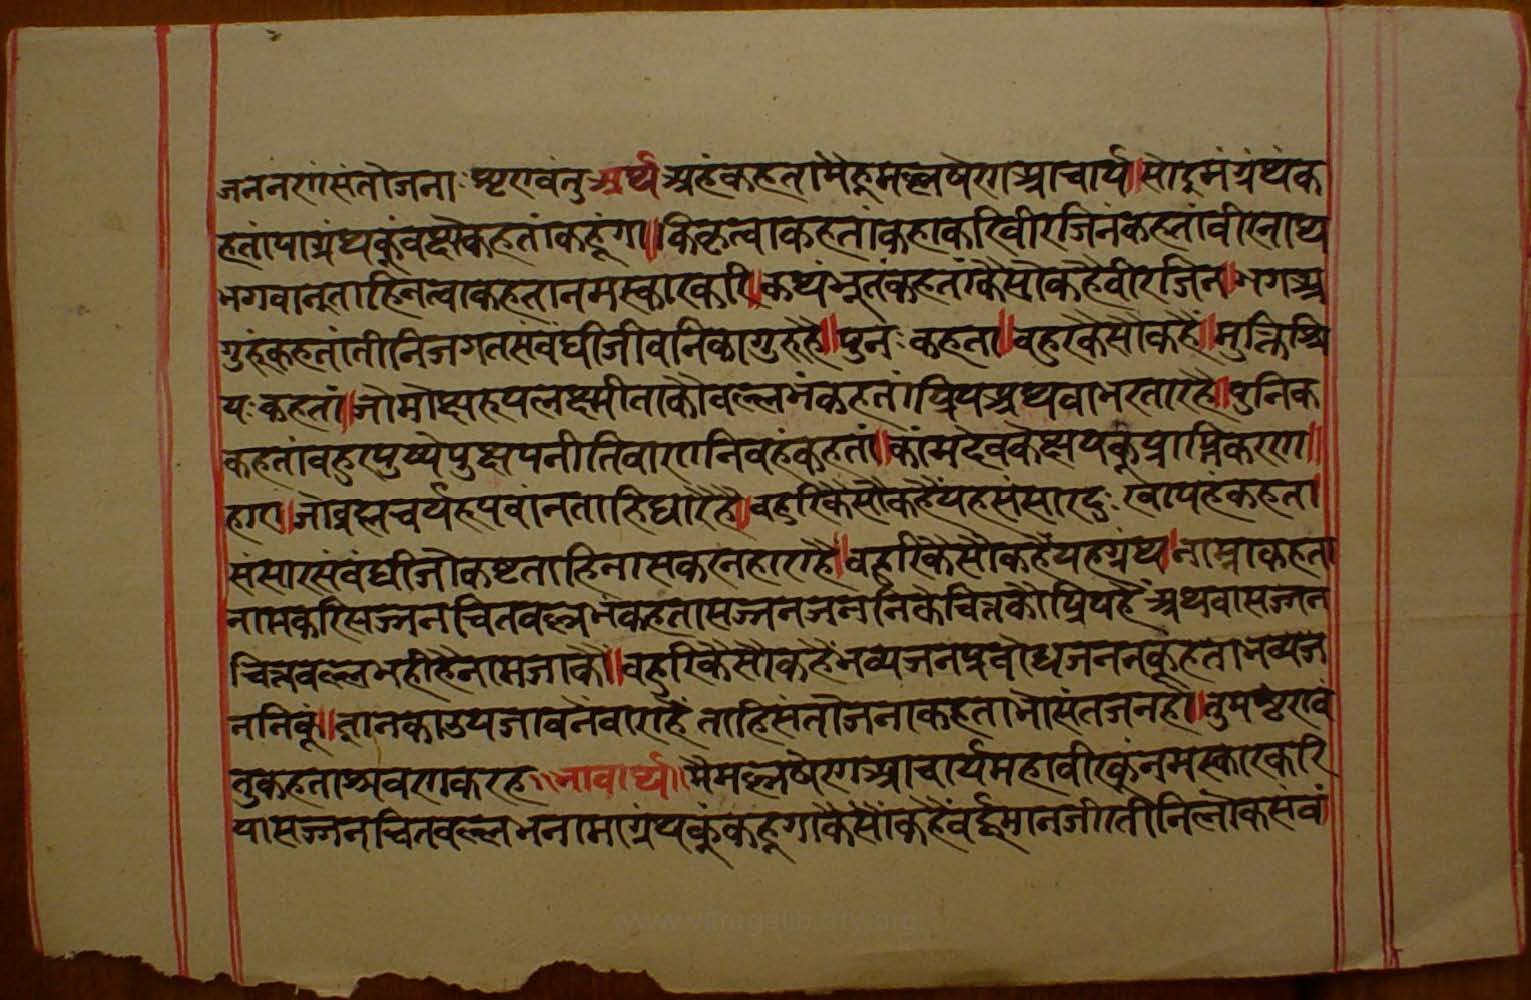 जननरगसंतोजनाः शृरगवंतु अर्थ अहंकहतामैहूमल्लषेरगआचार्य॥सोइमंग्रंथंक
हतांयाग्रंथकुंवक्षेकहतांकहूंगा॥किंकृत्वाकहतांकहाकरिवीरजिनंकहतांवीरनाथ
भगवानताहिनत्वाकहतानमस्कारकरि॥कथंभूतंकहतांकैसोकहैवीरजिन॥भगत्र
गुरुंकहतांतीनिजगतसंवंधीजीवनिकागुरुहै॥पुनः कहता॥वहुरकैसौकहैं॥मुक्तिश्रि
यःकहतां॥जोमोक्षरूपलक्ष्मीताकौवल्लभंकहतांप्रियअथवाभरतारहै॥पुनिक
कहतांवहुरपुष्पेषुक्षयनीतिवारगनिवहंकहतां॥कांमदेवकेक्षयकूंप्राप्तिकररग॥
हारा॥जोव्रह्मचर्यरूपवांनताहिधारैहै॥वहुरिकैसौकहैंयहसंसारदुःखापहंकहता
संसारसंवंधीजौकष्टताहिनासकरनहाराहै॥वहुरिकैसौकहैंयहग्रंथ॥नाम्नाकहता
नामकरिसज्जनचितवल्लभंकहतासज्जनजननिकेचित्तकौप्रियहैंअथवासज्जन
चित्तवल्लभहीहैनामजाकौ॥वहुरिकैसौकहैंभव्यजनप्रवोधजननकूहताभव्यज
ननिकूं॥ज्ञानकाउपजावनैंवाराहैं ताहिसंतोजनाकहताभोसंतजनहो॥तुमशृरगवं
तुकहताश्रवरगकरहु॥भावार्थ॥मैमल्लषेरगआचार्यमहावीरकुंनमस्कारकरि
यासज्जनचितवल्लभनामाग्रंथकुंकंहूगाकैसौंकहैंवर्द्धमानजीतीनिलोकसंवं
www.vitragelibrary.org